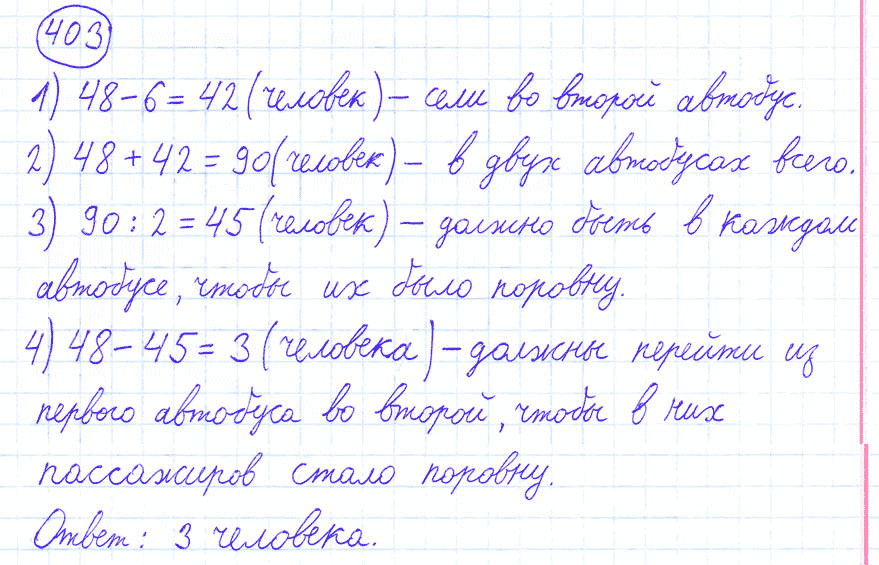 403
1) 48 - 6 = 42 (человек) - сели во второй автобус.
2) 48 + 42 = 90 (человек) - в двух автобусах всего.
3) 90 : 2 = 45 (человек) - должно быть в каждом
автобусе, чтобы их было поровну.
4) 48 - 45 = 3 (человека) - должны перейти из
первого автобуса во второй, чтобы в них
пассажиров стало поровну.
Ответ: 3 человека.